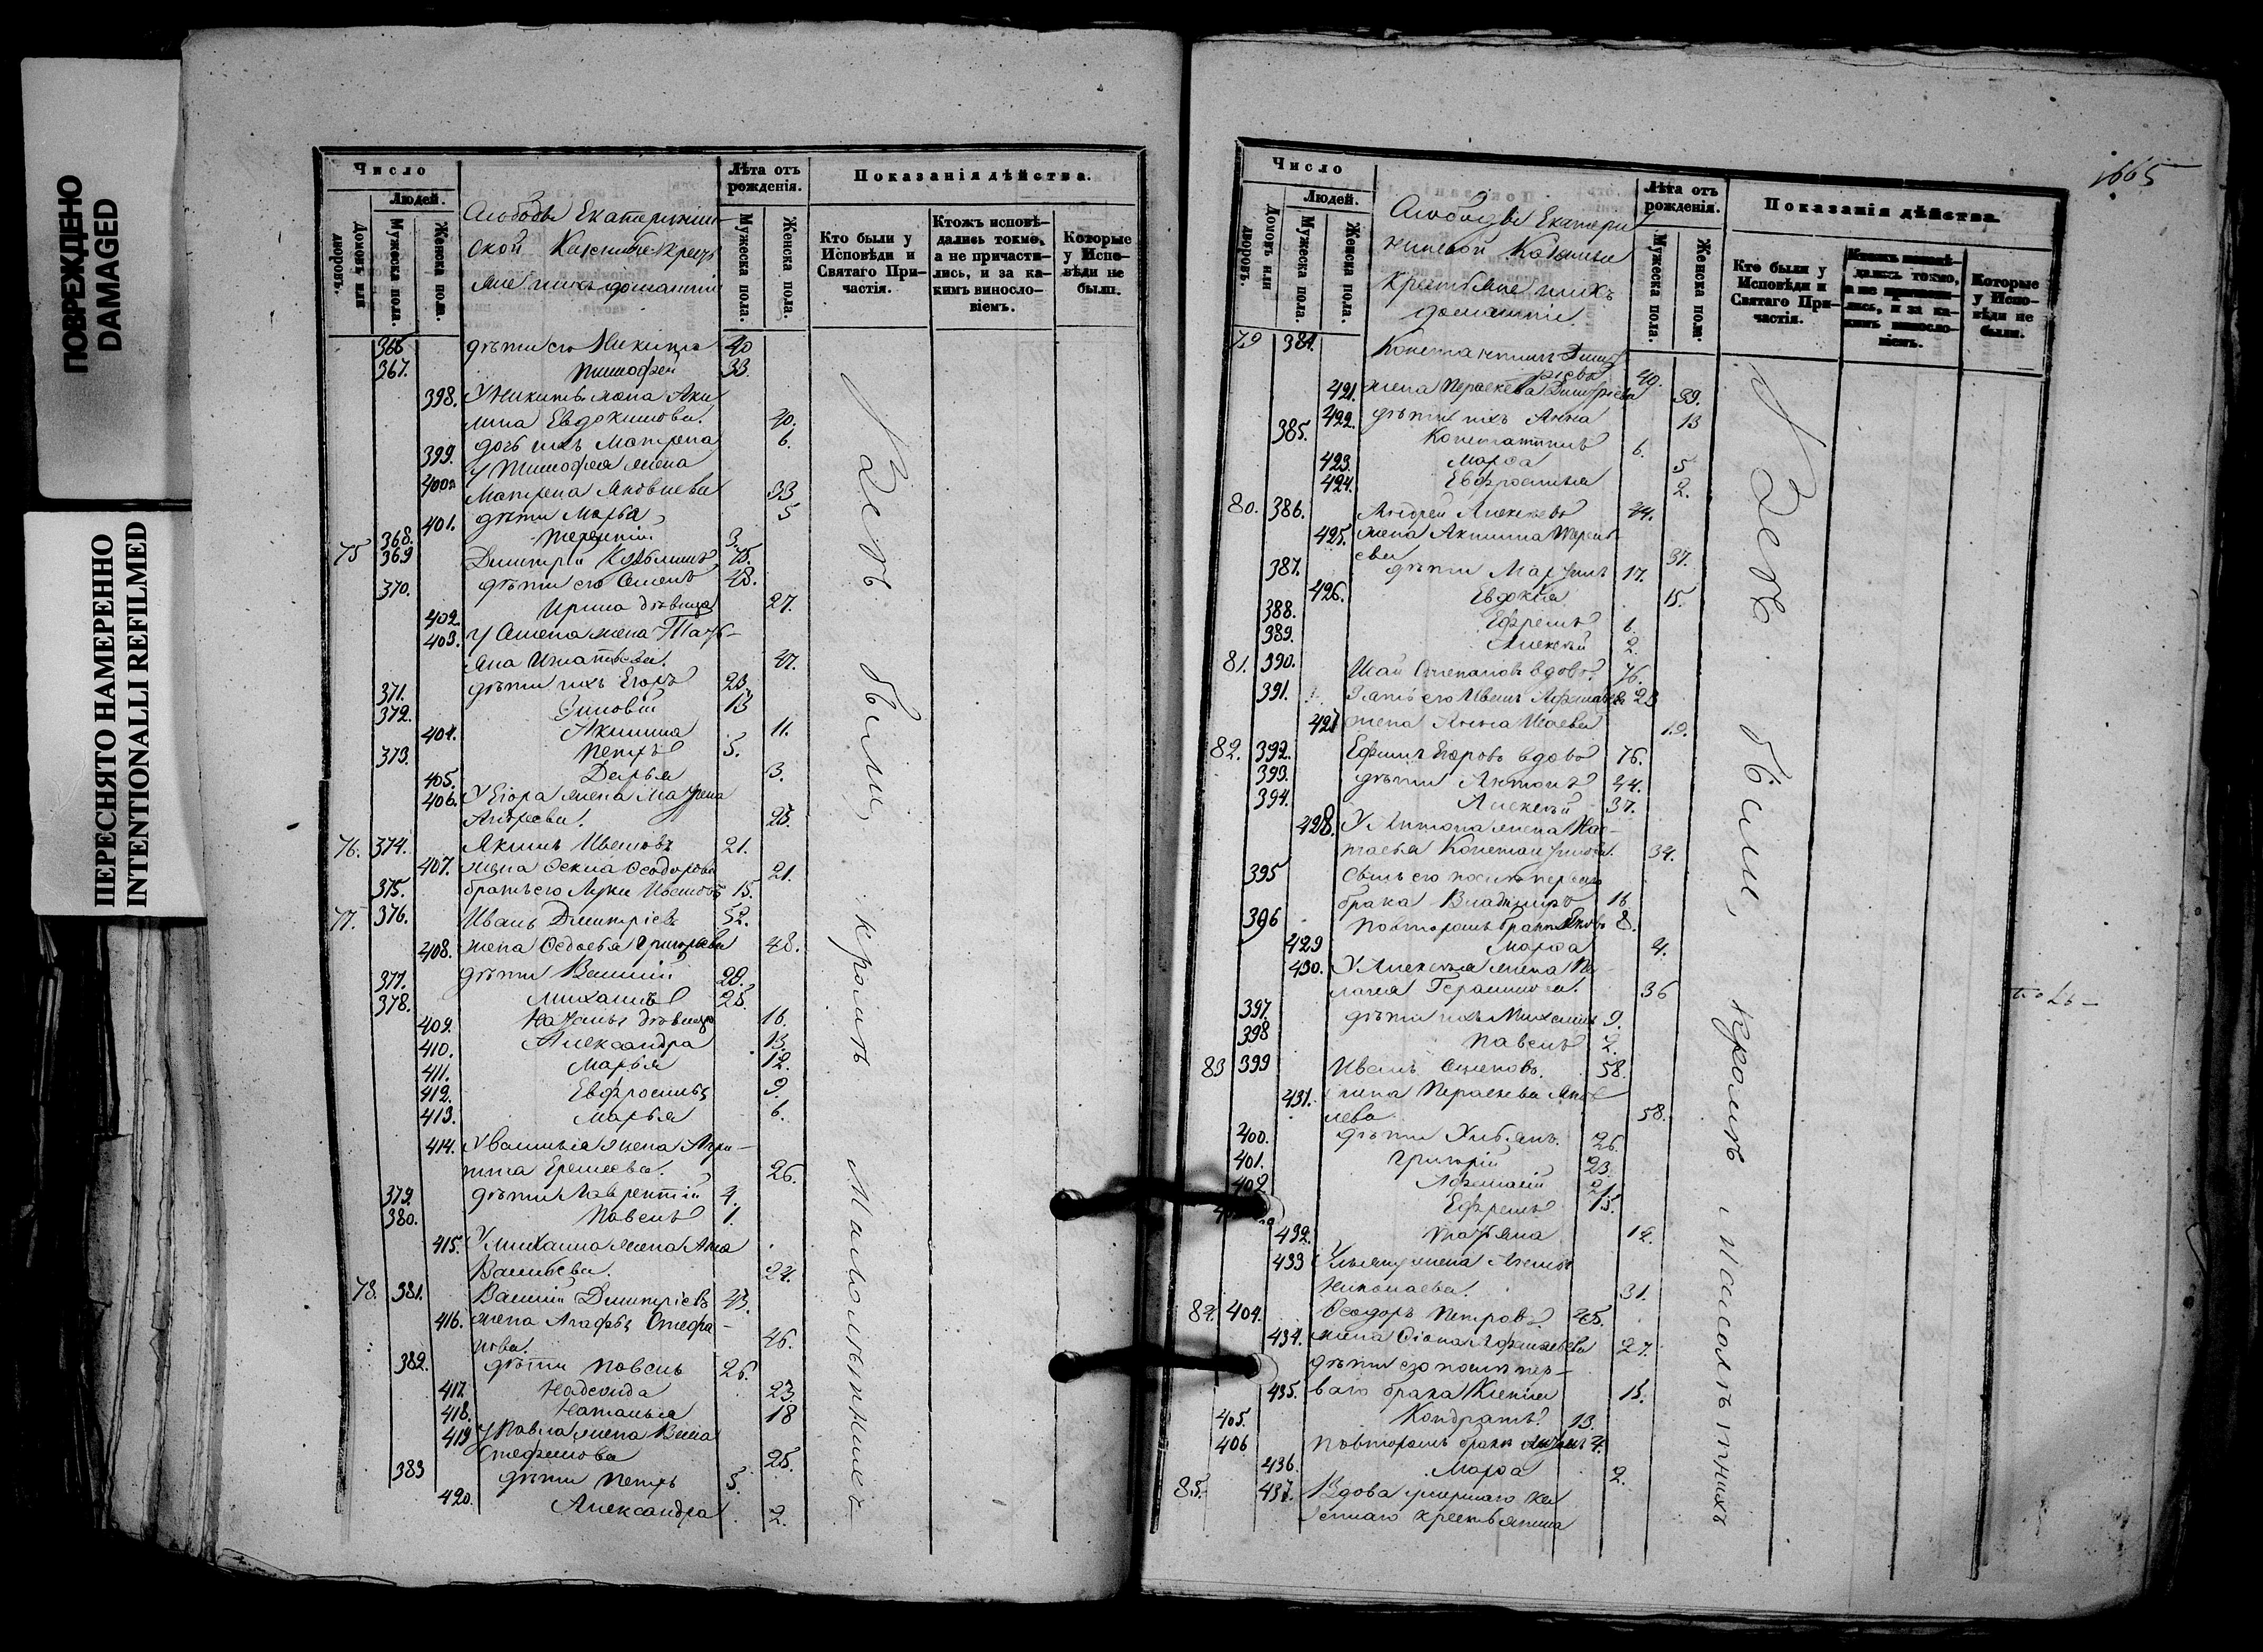 ПОВРЕЖДЕНО
DAMAGED
ПЕРЕСНЯТО НАМЕРЕННО
INTENTIONALLI REFILMED
Число
Людей.
Домовъ или дворовъ.
Мужеска пола.
Женска пола.
Слободы Екатеринин-
ской Казенные кресть
яне и ихъ домашніи
Лѣта отъ рожденія.
Мужеска пола.
Женска пола.
Показанія дѣйства.
Кто были у Исповѣди и Святаго При-частія.
Ктожъ исповѣ-дались токмо, а не причасти-лись, и за ка-кимъ винос­ло-віемъ.
Которые у Испо-вѣди не были.
366 дѣти его Никита 40
367. Тимофей 33.
398. У Никиты жена Аки
лина Евдокимова. 40.
399. дочь ихъ Матрона 6.
400. У Тимофея жена
Матрена Яковлева 33
401. дѣти Марья 5
368. Терентій 3.
75 369 Димитрій 75.
370. дѣти его Семенъ 48.
402. Ирина девица 27.
403. У Семена жена Татья-
на Игнатьева. 47.
371. дѣти ихъ Егоръ 23.
372. Зиновій 13
404. Акилина 11.
373. Петръ 5.
405. Дарья 3.
406. У Егора жена Матрена
Андреева. 23.
76. 374. Якимъ Ивановъ 21.
407. жена Ѳекла Ѳеодорова 21.
375. братъ его Лука Ивановъ 15.
77. 376. Иванъ Димитріевъ 52.
408. жена Ѳедосья Григорьева 48.
377. дѣти Василій 29.
378. Михаилъ 25.
409. Наталья девица 16.
410. Александра 13.
411. Марья 12.
412. Евфросинья 9.
413. Марья 6.
414. У Василья жена Агри-
пина Еремеева. 26.
379. дѣти Лаврентій 4.
380. Павелъ 1.
415. У Михаила жена Анна
Васильева. 24.
78. 381. Василій Димитріевъ 43.
416. жена Агафья Стефа-
нова. 46.
382. дѣти Павелъ 26.
417. Надежда 23.
418. Наталья 18
419 У Павла жена Васса
Стефанова 25.
383 дѣти Петръ 5.
420. Александра 2.
Всѣ были, кромѣ малолѣтнихъ
1665
Число
Людей.
Домовъ или дворовъ.
Мужеска пола.
Женска пола.
Слободы Екатери
ниневой Казенные
Крестьяне и ихъ
домашніи.
Лѣта отъ рожденія.
Мужеска пола.
Женска пола.
Показанія дѣйства.
Кто были у Исповѣди и Святаго При-частія.
Ктожъ исповѣ-дались токмо, а не причасти-лись, и за ка-кимъ винос­ло-віемъ.
Которые у Испо-вѣди не были.
79 384. Константинъ Димит
ріевъ 40.
421. жена Параскева Димитріева 39.
422. дѣти ихъ Анна 13
385. Константинъ 6.
423. Марѳа 5
424. Евфросинья 2.
80. 386. Андрей Алексѣевъ 44.
425. жена Акилина Терент
ева 37.
387. дѣти Мартинъ 17.
426. Евдокія 15.
388. Ефремъ 6.
389. Алексѣй 2.
81. 390. Исай Степановъ вдовъ 76.
391. Зять его Иванъ Афанасьевъ 23
427 жена Анна Исаева 19.
82. 392. Ефимъ Егоровъ вдовъ 76.
393. дѣти Антонъ 44.
394. Алексѣй 37.
428. У Антона жена Нас-
тасья Константинова. 34.
395 Сынъ его послѣ перваго
брака Владиміръ 16
396 повторомъ бракѣ Яковъ 8.
429 Марѳа 4.
430. У Алексѣя жена Пе-
лагея Герасимова. 36
397. дѣти ихъ Михаилъ 9.
398 Павелъ 2.
83 399 Иванъ Семеновъ. 58.
431. жена Параскева Яков
лева 58.
400. дѣти Ульянъ. 26.
401. Григорій 23.
402 Афанасій 21.
Ефремъ 15.
432. Татьяна 14.
433 Ульяну жена
Николаева. 31.
84. 404. Ѳеодоръ Петровъ 45.
434. жена Афанасьева 27.
дѣти его послѣ пер-
435. ваго брака Ксенія 15.
405. Кондратъ 13.
406 повторомъ бракѣ 4.
436. Марѳа 2.
85. 437. Вдова умершаго ка
зеннаго крестьянина
Всѣ были, кромѣ малолѣтнихъ